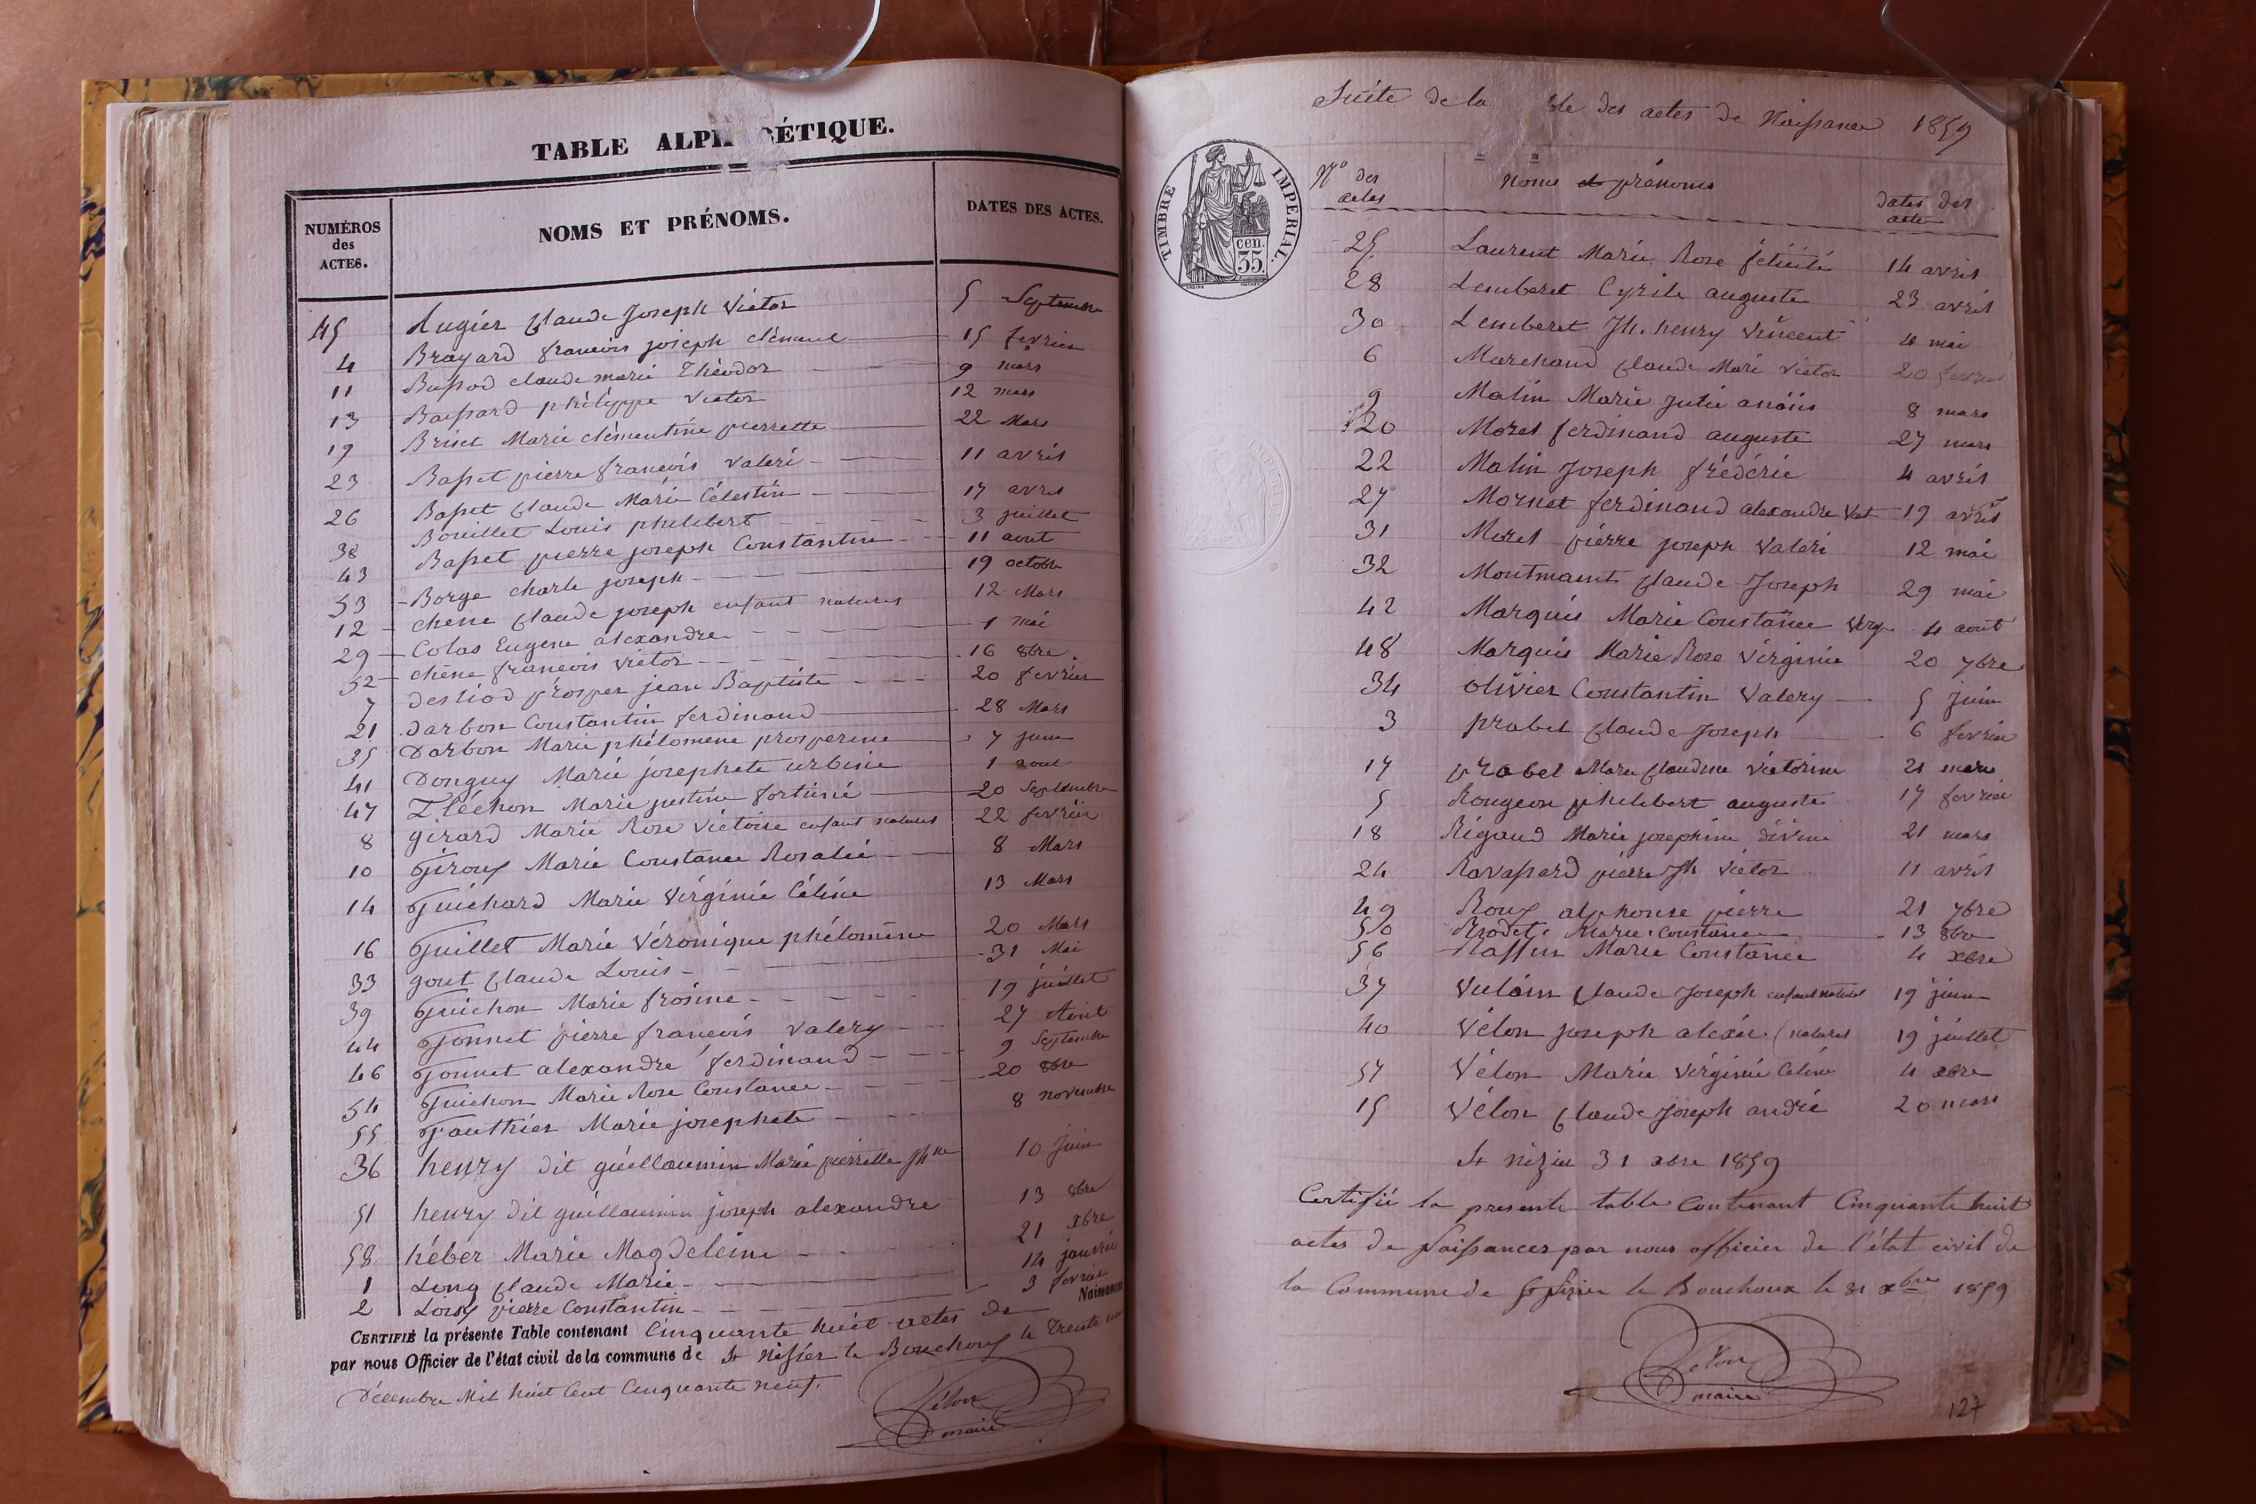 TABLE ALPH BÉTIQUE.
NUMÉROS des ACTES. NOMS ET PRÉNOMS. DATES DES ACTES.
45 Augier Claude Joseph Victor 5 Septembre
4 Brayard francois joseph clément 15 fevrier
11 Bussod claude marie Théodor 9 mars
13 Baissard philippe Victor 12 mars
19 Briset Marie clémentine pierrette 22 Mars
23 Basset pierre francois valeri 11 avril
26 Basset Claude Marie Célestin 17 avril
38 Bouillet Louis philibert 3 juillet
43 Basset pierre joseph Constantin 11 aout
53 Borge charle joseph 19 octobre
12 chene Claude joseph enfant naturel 12 Mars
29 Colas Eugene alexandre 1 mai
52 chêne francois victor 16 8bre
7 destiod prosper jean Baptiste 20 fevrier
21 darbon Constantin ferdinand 28 Mars
35 Darbon Marie phélomene prosperine 7 juin
41 Donguy Marie josephete urbinie 1 aout
47 Fléchon Marie justine fortuné 20 Septembre
8 girard Marie Rose Victoire enfant naturel 22 fevrier
10 Giroux Marie Constance Rosalie 8 Mars
14 Guichard Marie Virginie Céline 13 Mars
16 Guillet Marie Véronique phélomène 20 Mars
33 gout Claude Louis 31 Mai
39 Guichon Marie frosine 19 juillet
44 Gonnet pierre francois Valery 27 Aout
46 Gonnet alexandre ferdinand 9 Septembre
54 Guichon Marie Rose Constance 20 8bre
55 Gauthier Marie josephete 8 novembre
36 henry dit guillaumin Marie pierrette Jhne 10 Juin
51 henry dit guillaumin joseph alexandre 13 8bre
58 héber Marie Magdeleine 21 xbre
1 Long Claude Marie 14 janvrier
2 Loisy pierre Constantin 3 fevrier
CERTIFIÉ la présente Table contenant Cinquante huit actes de Naissances
par nous Officier de l'état civil de la commune de St Nisier le Bouchoux le Trente un
Décembre Mil huit Cent Cinquante neuf.
Vélon
maire
Suite de la ble des actes de Naissance 1859
TIMBRE IMPERIAL.
35 cen.
No des actes Noms et prénoms dates des actes
25 Laurent Marie Rose félicité 14 avril
28 Lemberet Cyrile auguste 23 avril
30 Lemberet Jh. henry Vincent 4 mai
6 Marchand Claude Marie Victor 20 fevrier
9 Matin Marie julie anaïs 8 mars
20 Morel ferdinand auguste 27 mars
22 Matin Joseph frédéric 4 avril
27 Mornet ferdinand alexandre Vict 19 avril
31 Morel pierre joseph Valeri 12 mai
32 Montmaint Claude Joseph 29 mai
42 Marquis Marie Constance Virg 4 aout
48 Marquis Marie Rose Virginie 20 7bre
34 olivier Constantin Valery 5 juin
3 prabel Claude Joseph 6 fevrier
17 prabel Marie Claudine Victorine 21 mars
5 Rougeon philibert auguste 17 fevrier
18 Rigaud Marie josephine divine 21 mars
24 Ravassard pierre Jh Victor 11 avril
49 Roux alphonse pierre 21 7bre
50 Rodet Marie Constance 13 8bre
56 Raffin Marie Constance 4 xbre
37 Vulain Claude Joseph enfant naturel 19 juin
40 Vélon joseph alexis (naturel 19 juillet
57 Vélon Marie Virginie Céline 4 xbre
15 Vélon Claude Joseph andré 20 mars
St nizier 31 xbre 1859
Certifié la presente table Contenant Cinquante huit
actes de Naissances par nous officier de l'état civil de
la Commune de St Nizier le Bouchoux le 31 xbre 1859
Vélon
maire
127